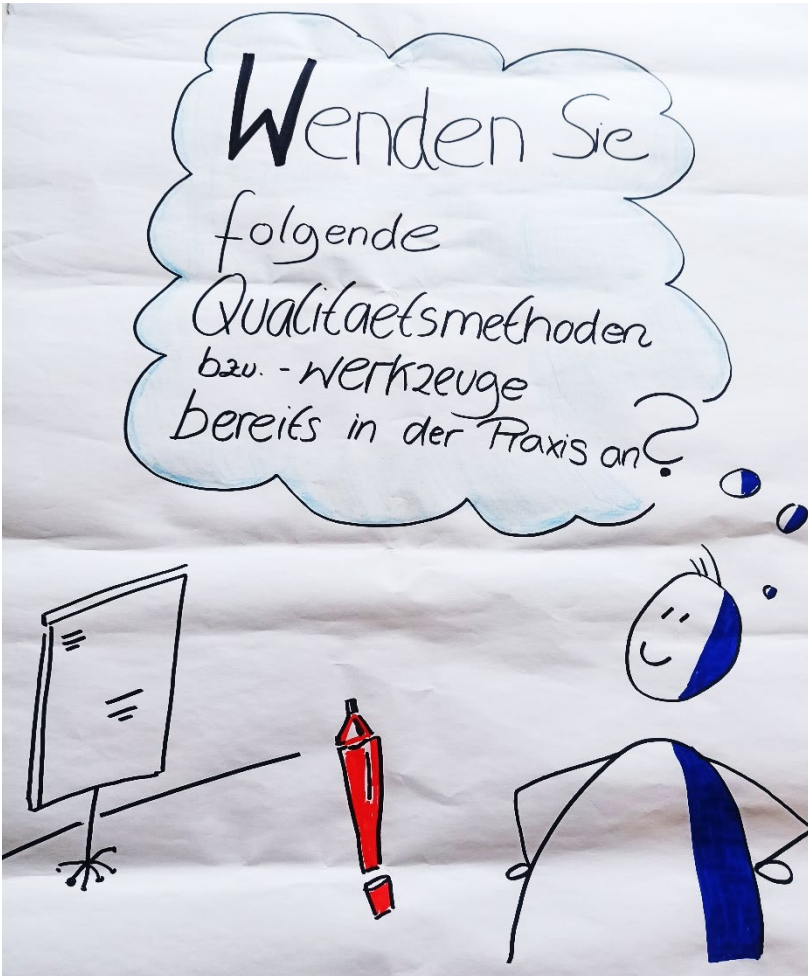 Wenden Sie
folgende
Qualitaetsmethoden
bzw. - Werkzeuge
bereits in der Praxis an?